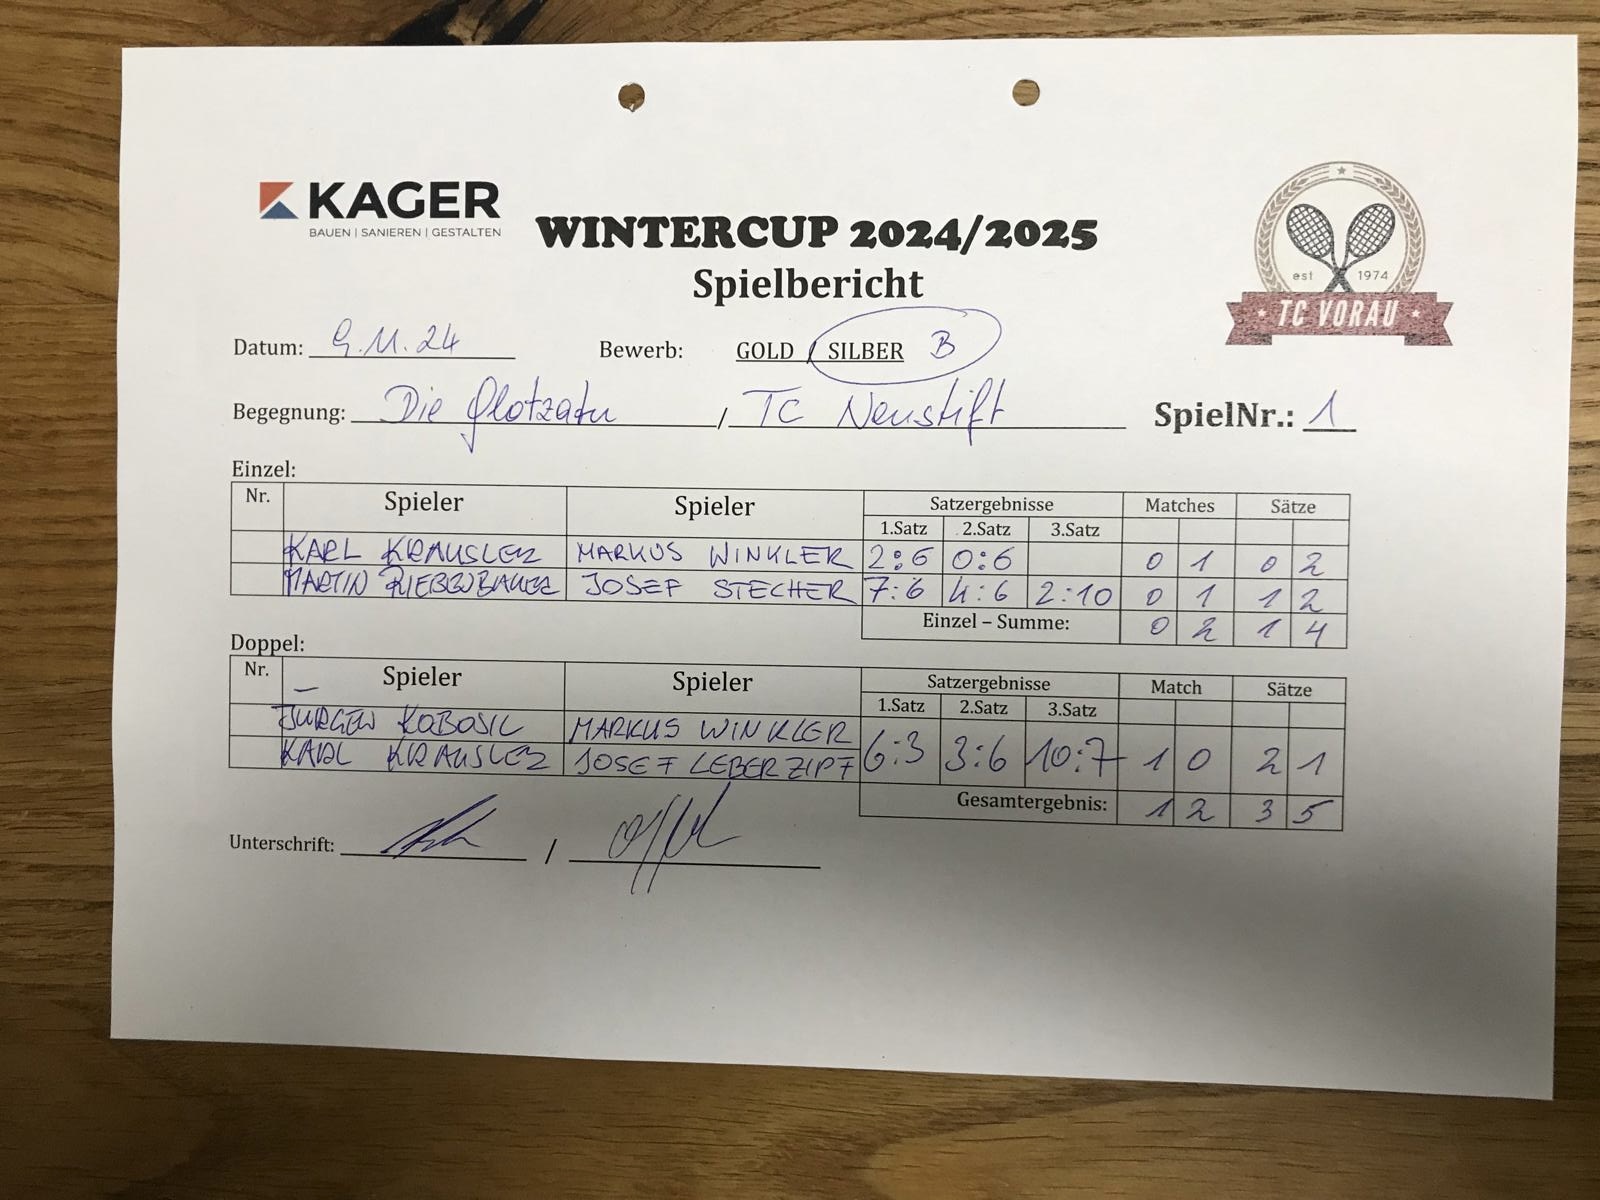 KAGER
BAUEN | SANIEREN | GESTALTEN
WINTERCUP 2024/2025
Spielbericht
est 1974
TC VORAU
Datum: 9.11.24 Bewerb: GOLD / SILBER B
Begegnung: Die / TC Neustift SpielNr.: 1
Einzel:
Nr. Spieler Spieler Satzergebnisse Matches Sätze
1.Satz 2.Satz 3.Satz
KARL KRAUSLER MARKUS WINKLER 2:6 0:6 0 1 0 2
MARTIN JOSEF STECHER 7:6 4:6 2:10 0 1 1 2
Einzel – Summe: 0 2 1 4
Doppel:
Nr. Spieler Spieler Satzergebnisse Match Sätze
1.Satz 2.Satz 3.Satz
JURGEN KOBOSIL MARKUS WINKLER 6:3 3:6 10:7 1 0 2 1
KARL KRAUSLER JOSEF LEBERZIPF
Gesamtergebnis: 1 2 3 5
Unterschrift: /